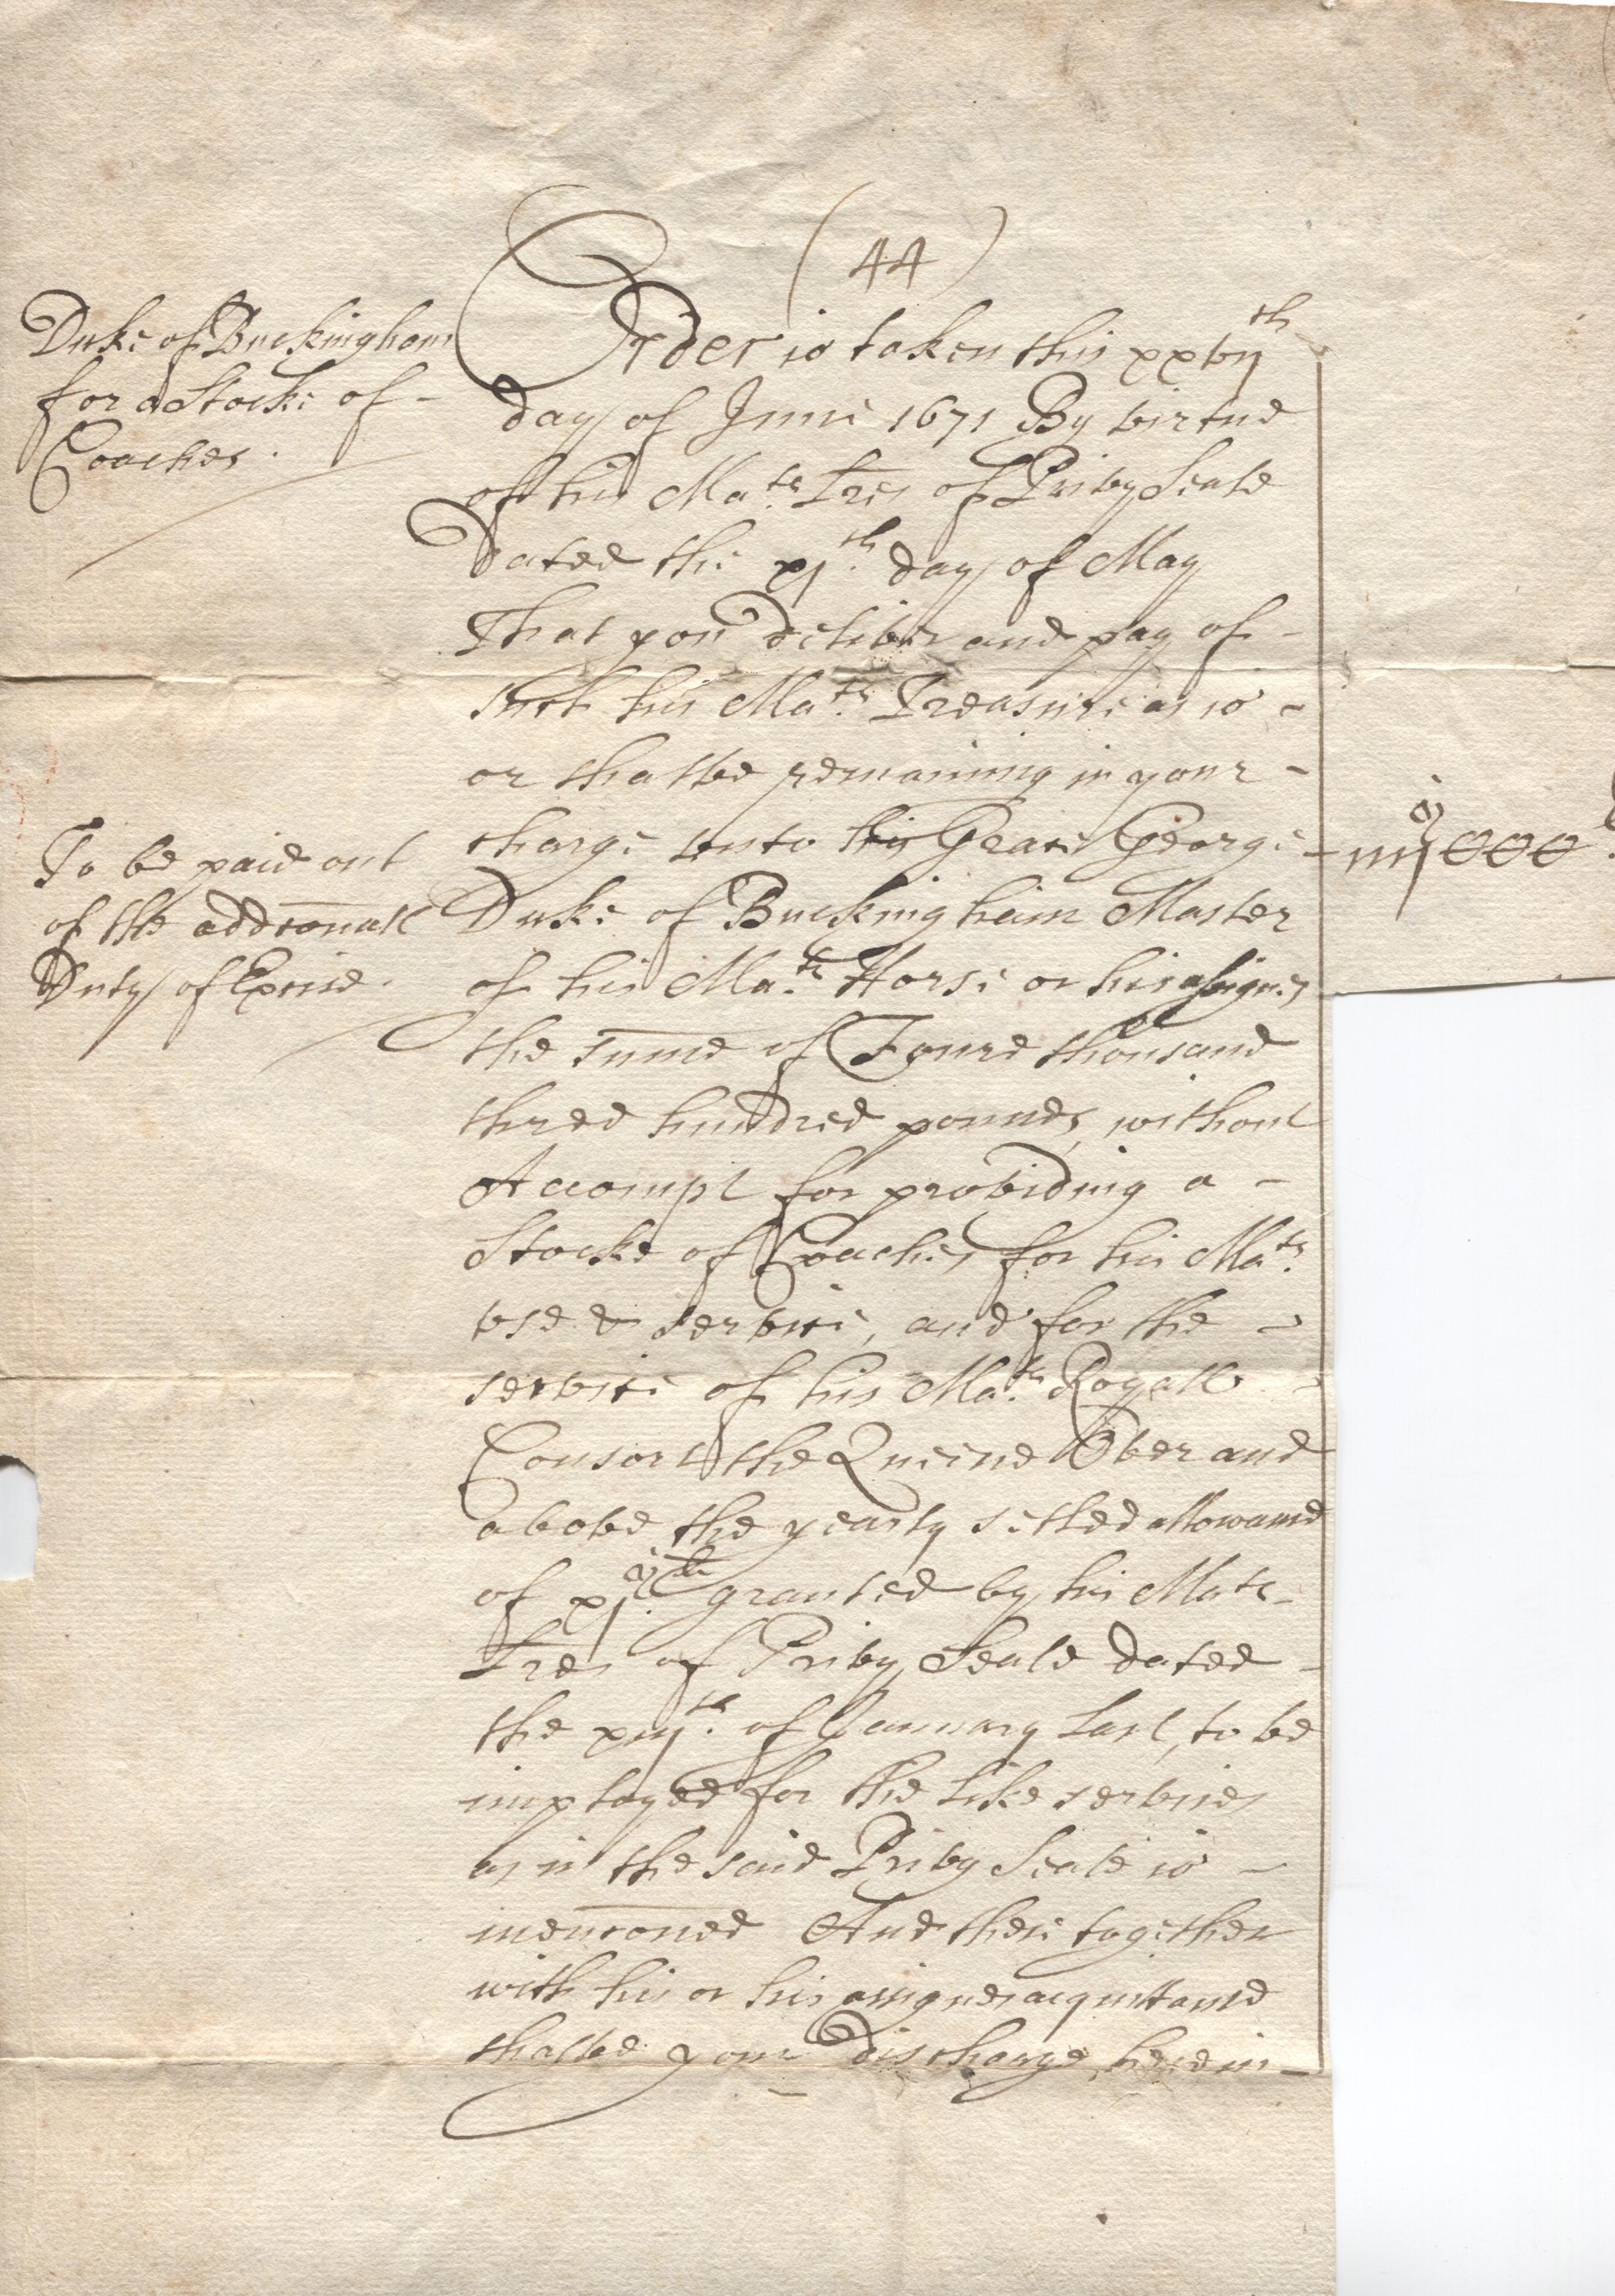 (44)
Duke of Buckingham
for a Stocke of -
Coaches.
To be paid out
of the addconall
Duty of Excise.
Order is taken this xxvij th
day of June 1671 By virtue
of his Ma.ts Lres of Privy Seale
Dated the xj.th day of May
That you deliver and pay of -
such his Ma.ts Treasure as is -
or shalbe remaining in your -
charge unto his Grace George -
Duke of Buckingham Master
of his Ma.ts Horse or his assignes
the summe of Foure thousand
three hundred pounds, without
Accompt for provideing a -
Stocke of Coaches for his Ma.ts
vse & service, and for the -
service of his Ma.ts Royall -
Consort the Queene Over and
above the yearly setled allowance
of granted by his Mats -
Lres of Privy Seale dated -
the of January Last, to be
imployed for the like services
as in the said Privy Seale is -
mencioned And these together
with his or his assignes acquittance
shalbe your discharge herein -